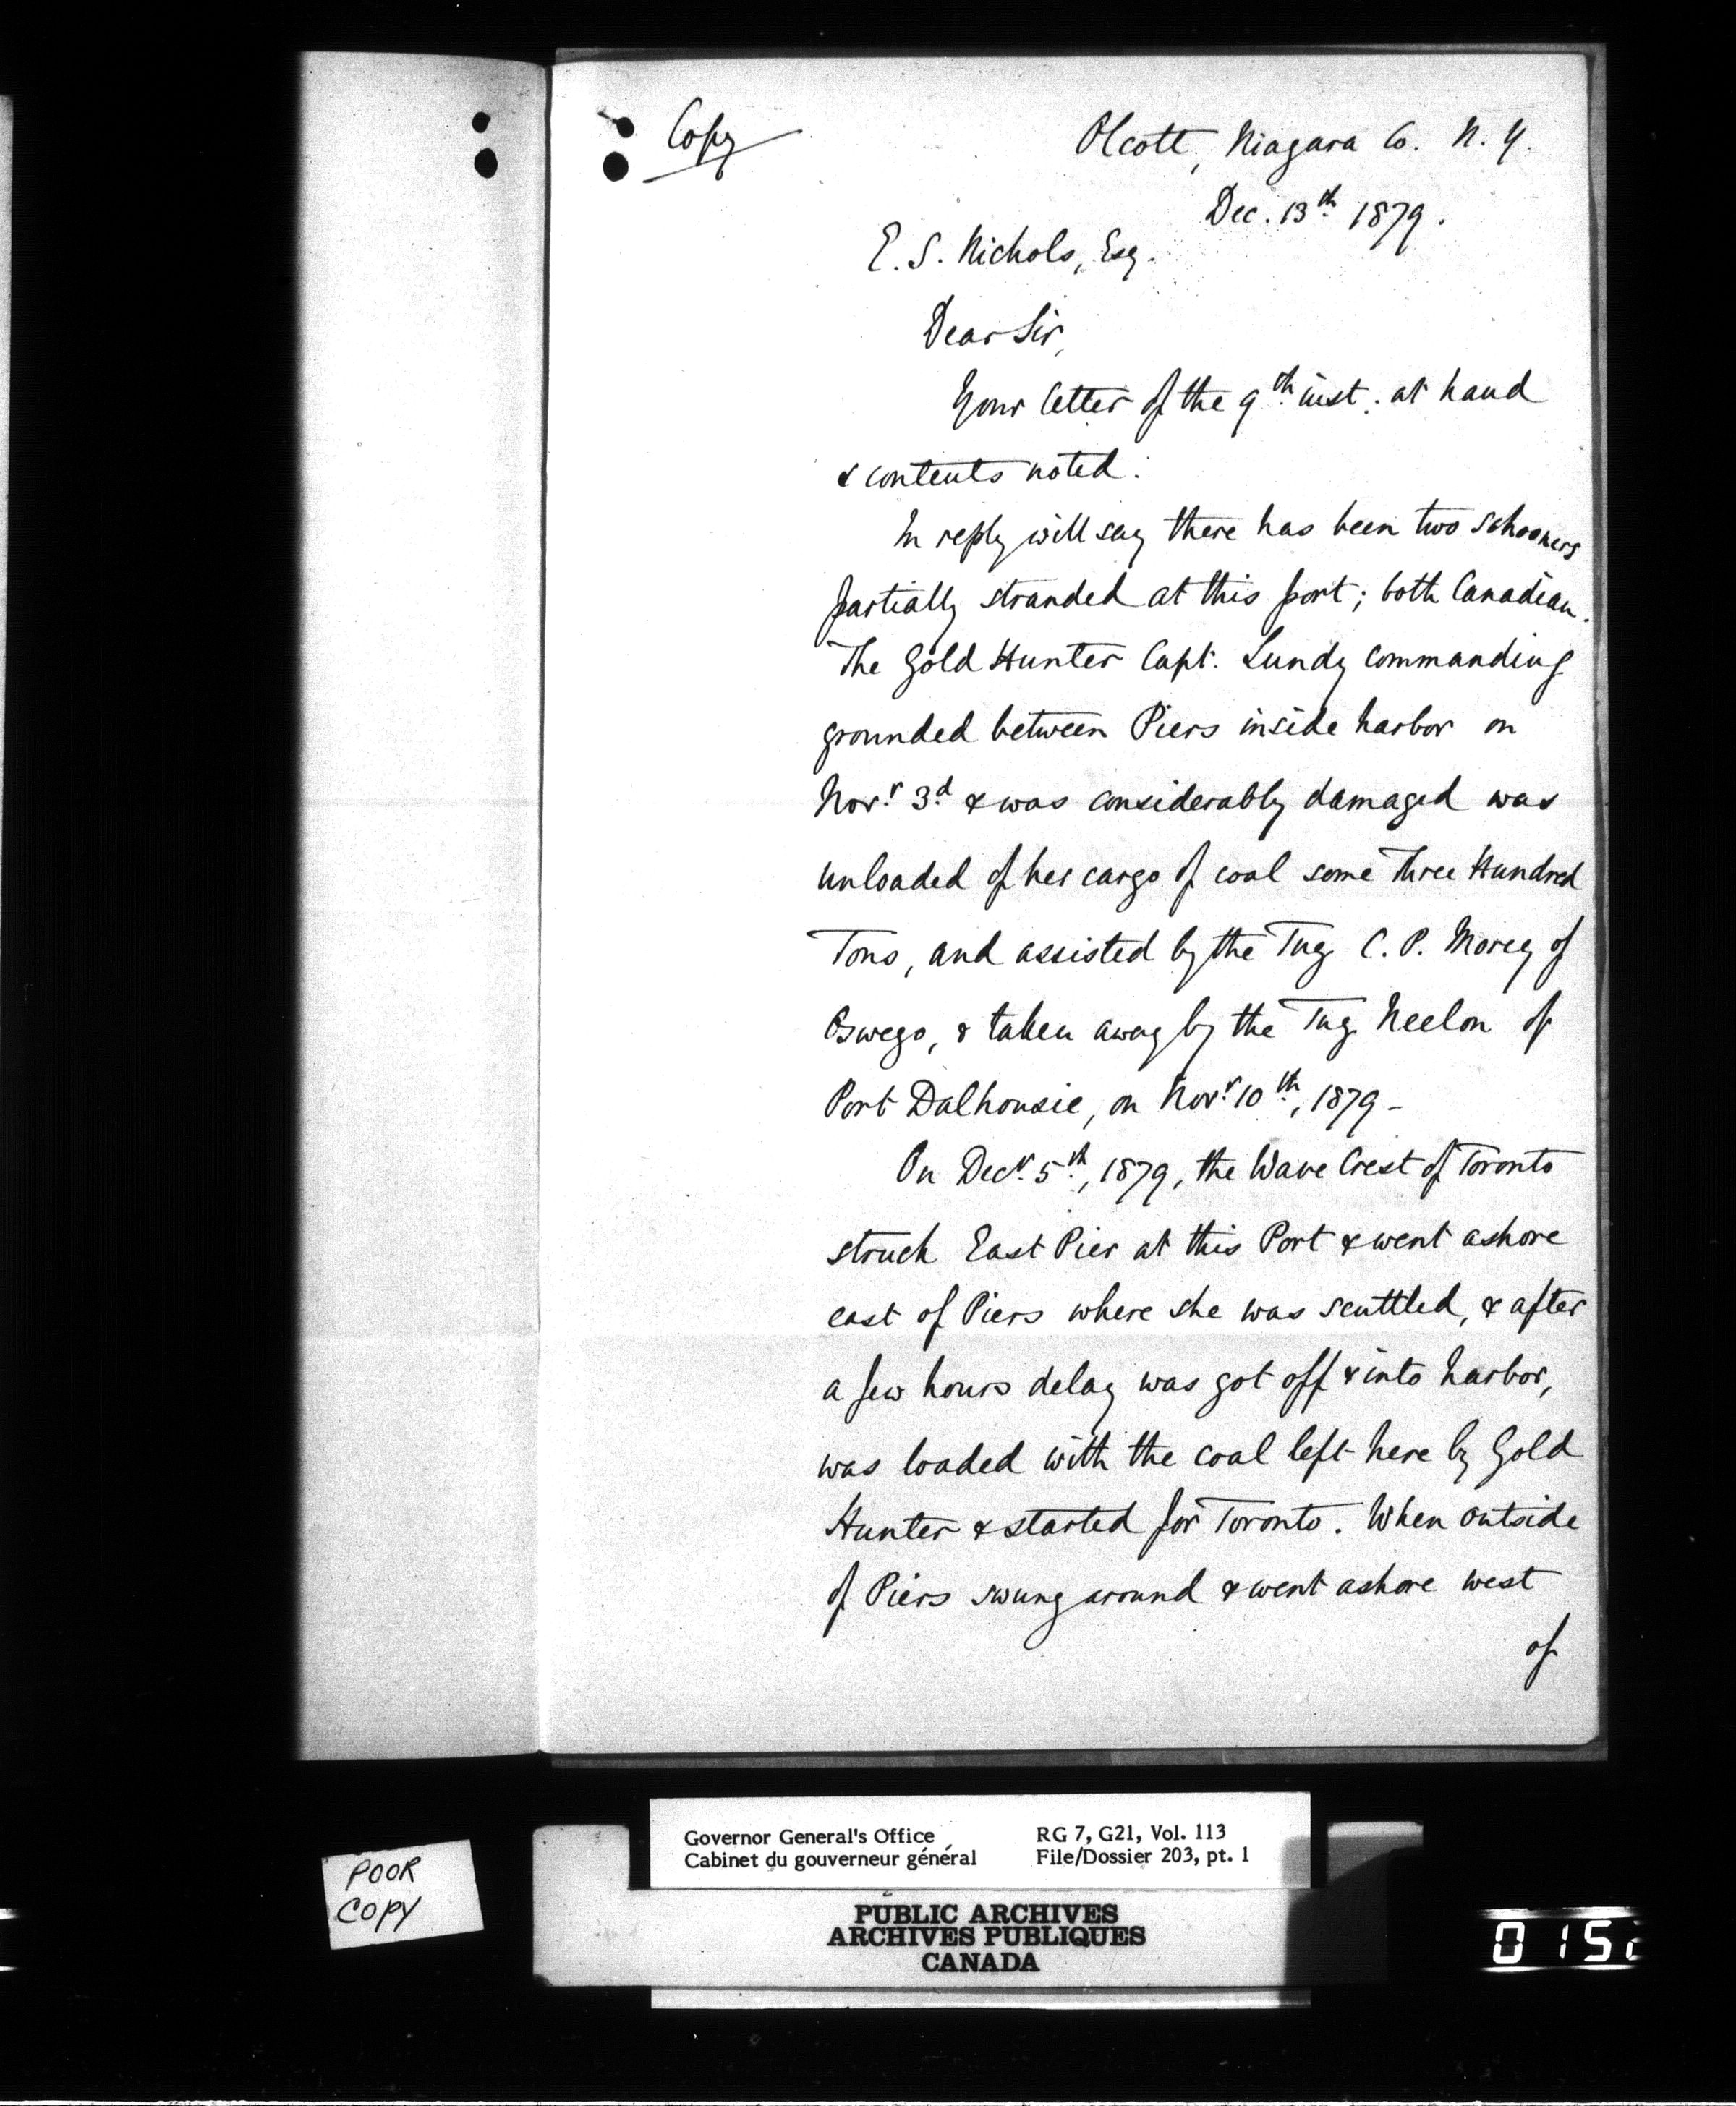 Copy
Olcott, Niagara Co. N. Y.
Dec. 13th 1879.
E. S. Nichols, Esq.
Dear Sir,
Your letter of the 9th inst. at hand
& contents noted.
In reply will say there has been two schooners
partially stranded at this port; both Canadian.
The Gold Hunter Capt. Lundy commanding
grounded between Piers inside harbor on
Novr 3d & was considerably damaged was
unloaded of her cargo of coal some Three Hundred
Tons, and assisted by the Tug C. P. Morey of
Oswego, & taken away by the Tug Neelon of
Port Dalhousie, on Novr 10th, 1879 -
On Decr 5th, 1879, the Wave Crest of Toronto
struck East Pier at this Port & went ashore
east of Piers where she was scuttled, & after
a few hours delay was got off & into harbor,
was loaded with the coal left here by Gold
Hunter & started for Toronto. When outside
of Piers swung around & went ashore west
of
Governor General's Office
Cabinet du gouverneur général
RG 7, G21, Vol. 113
File/Dossier 203, pt. 1
POOR
COPY
PUBLIC ARCHIVES
ARCHIVES PUBLIQUES
CANADA
015